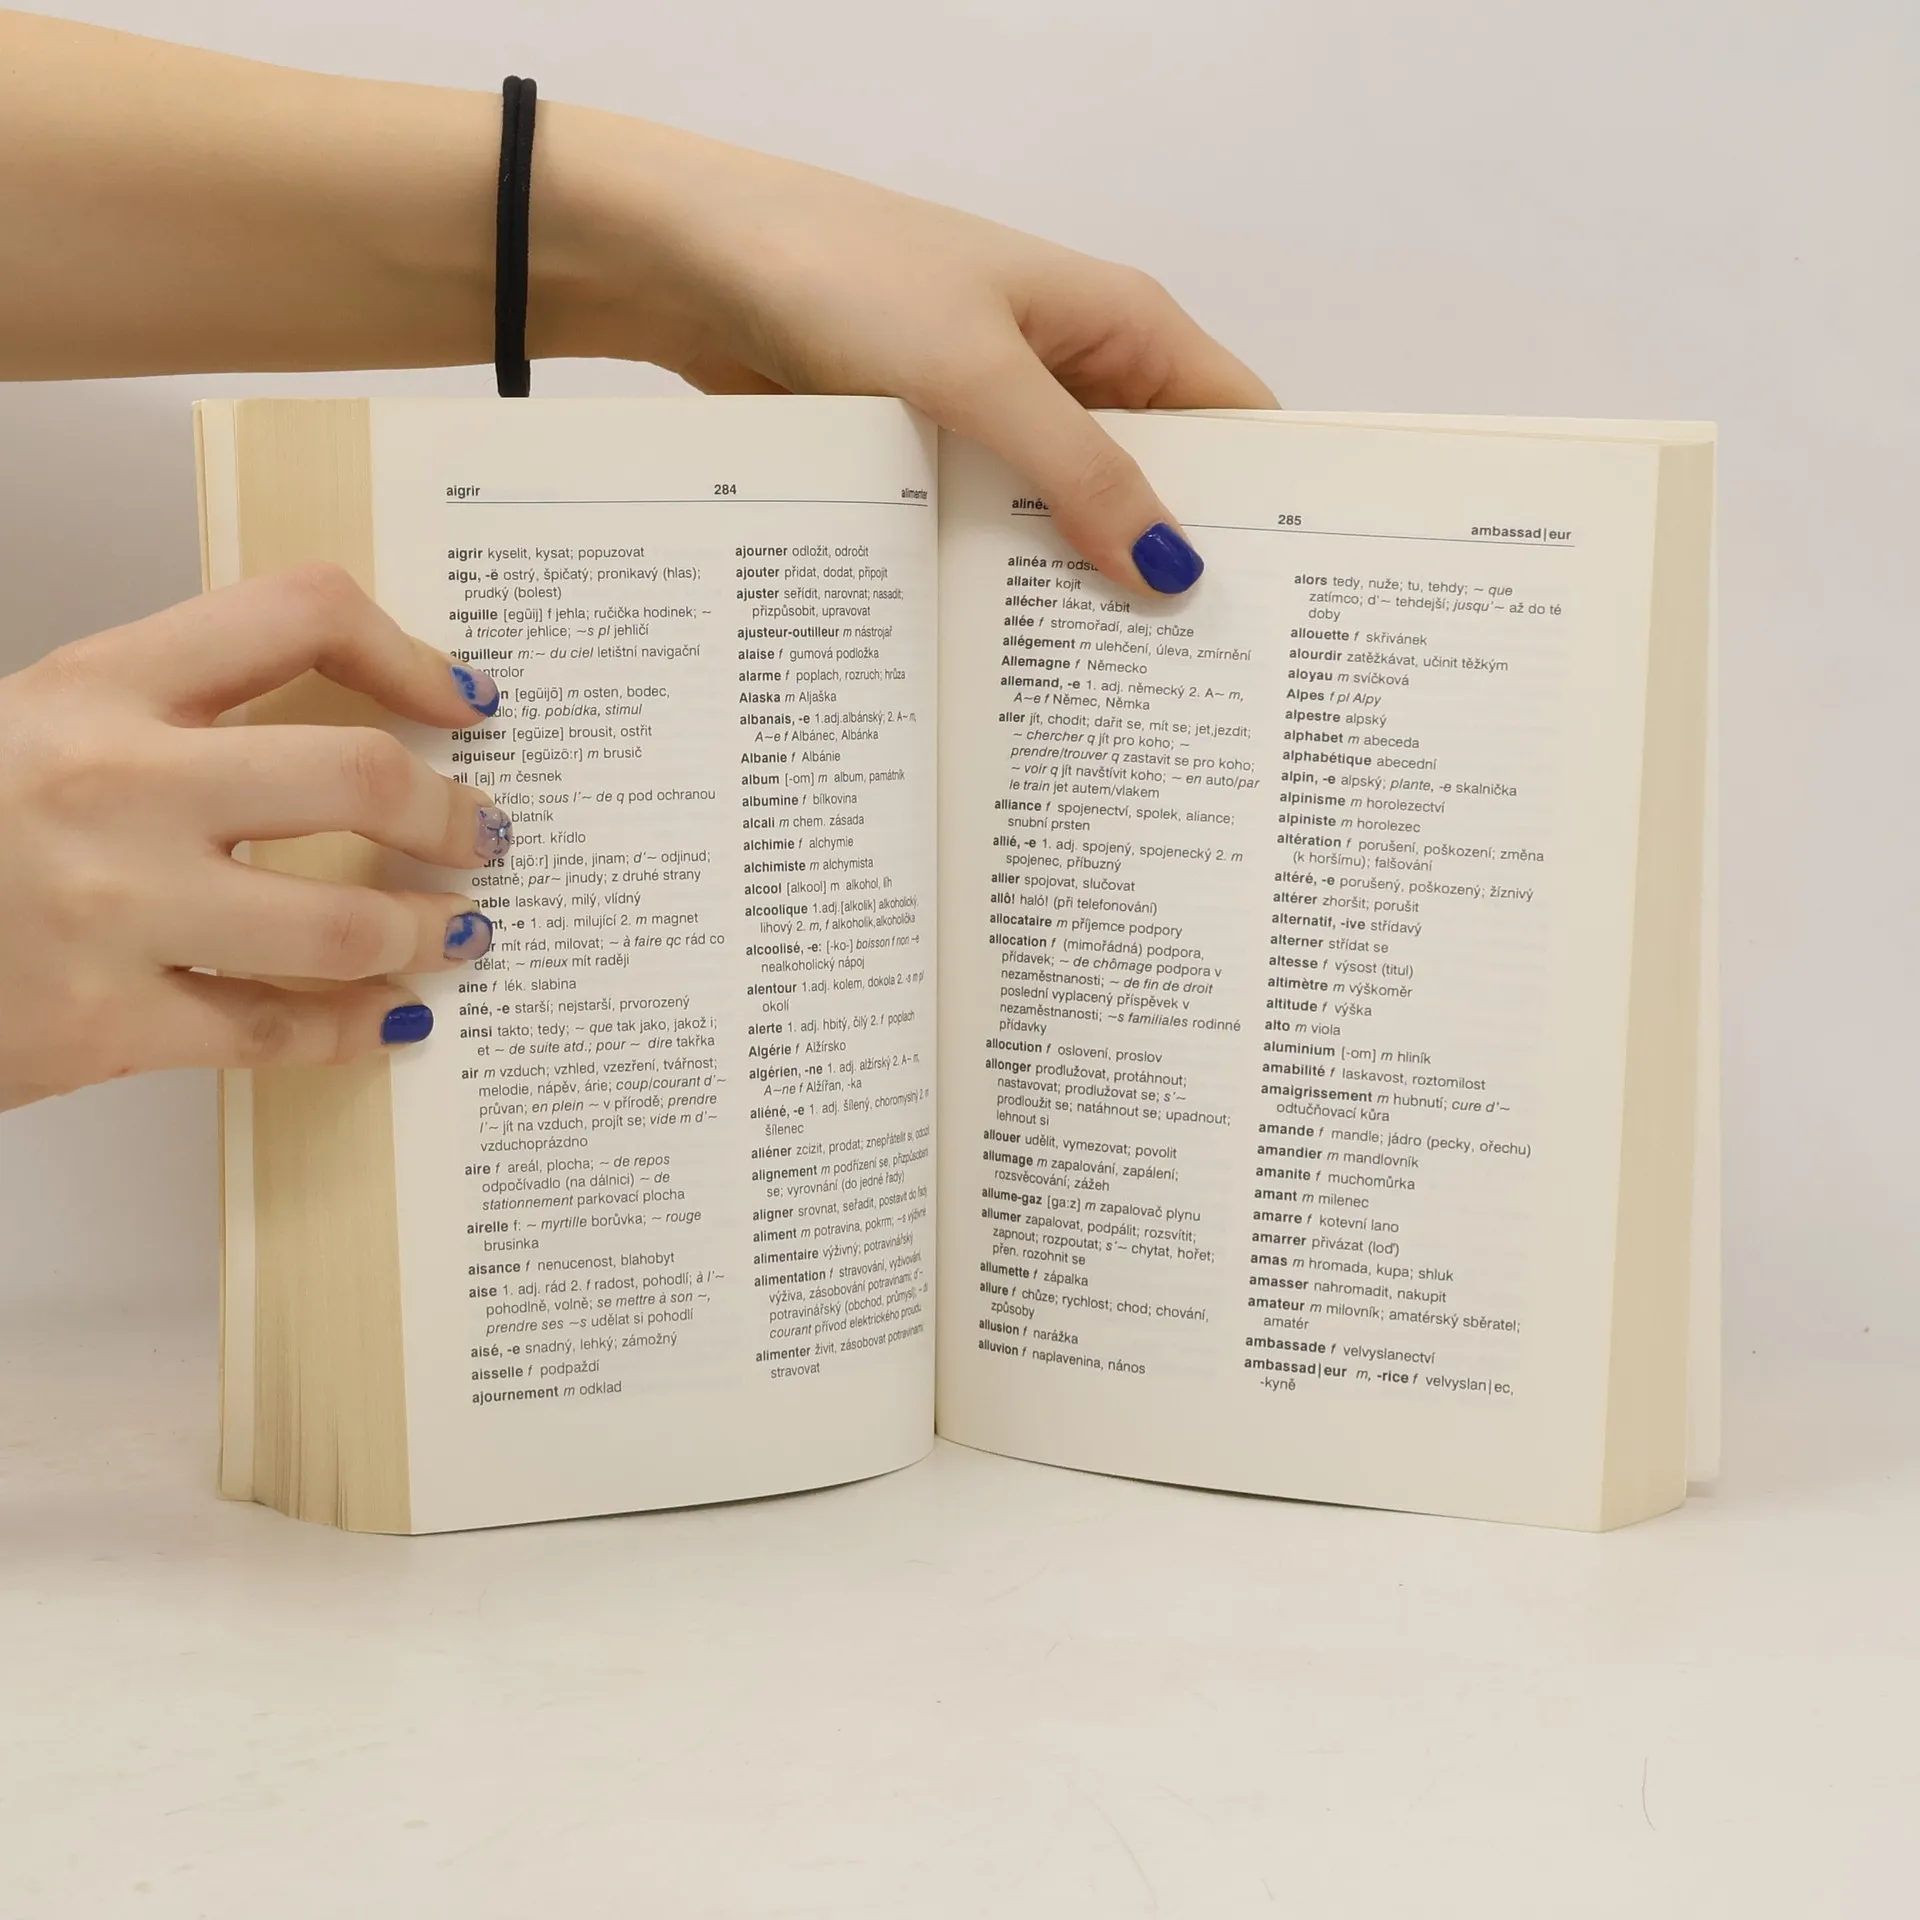 aigrir 284 alimenter
aigrir kyselit, kysat; popuzovat
aigu, -ë ostrý, špičatý; pronikavý (hlas);
prudký (bolest)
aiguille [egüij] f jehla; ručička hodinek; ~
à tricoter jehlice; ~s pl jehličí
aiguilleur m:~ du ciel letištní navigační
[egüijõ] m osten, bodec,
fig. pobídka, stimul
aiguiser [egüize] brousit, ostřit
aiguiseur [egüizö:r] m brusič
ail [aj] m česnek
křídlo; sous l'~ de q pod ochranou
blatník
sport. křídlo
[ajö:r] jinde, jinam; d'~ odjinud;
ostatně; par~ jinudy; z druhé strany
laskavý, milý, vlídný
-e 1. adj. milující 2. m magnet
mít rád, milovat; ~ à faire qc rád co
dělat; ~ mieux mít raději
aine f lék. slabina
aîné, -e starší; nejstarší, prvorozený
ainsi takto; tedy; ~ que tak jako, jakož i;
et ~ de suite atd.; pour ~ dire takřka
air m vzduch; vzhled, vzezření, tvářnost;
melodie, nápěv, árie; coup/courant d'~
průvan; en plein ~ v přírodě; prendre
l'~ jít na vzduch, projít se; vide m d'~
vzduchoprázdno
aire f areál, plocha; ~ de repos
odpočívadlo (na dálnici) ~ de
stationnement parkovací plocha
airelle f: ~ myrtille borůvka; ~ rouge
brusinka
aisance f nenucenost, blahobyt
aise 1. adj. rád 2. f radost, pohodlí; à l'~
pohodlně, volně; se mettre à son ~,
prendre ses ~s udělat si pohodlí
aisé, -e snadný, lehký; zámožný
aisselle f podpaždí
ajournement m odklad
ajourner odložit, odročit
ajouter přidat, dodat, připojit
ajuster seřídit, narovnat; nasadit;
přizpůsobit, upravovat
ajusteur-outilleur m nástrojař
alaise f gumová podložka
alarme f poplach, rozruch; hrůza
Alaska m Aljaška
albanais, -e 1.adj.albánský; 2. A~ m,
A~e f Albánec, Albánka
Albanie f Albánie
album [-om] m album, památník
albumine f bílkovina
alcali m chem. zásada
alchimie f alchymie
alchimiste m alchymista
alcool [alkool] m alkohol, líh
alcoolique 1.adj.[alkolik] alkoholický,
lihový 2. m, f alkoholik,alkoholička
alcoolisé, -e: [-ko-] boisson f non ~e
nealkoholický nápoj
alentour 1.adj. kolem, dokola 2. -s m pl
okolí
alerte 1. adj. hbitý, čilý 2. f poplach
Algérie f Alžírsko
algérien, -ne 1. adj. alžírský 2. A~ m,
A~ne f Alžířan, -ka
aliéné, -e 1. adj. šílený, choromyslný 2. m
šílenec
aliéner zcizit, prodat; znepřátelit si,
alignement m podřízení se, přizpůsobení
se; vyrovnání (do jedné řady)
aligner srovnat, seřadit, postavit do řady
aliment m potravina, pokrm; ~s výživné
alimentaire výživný; potravinářský
alimentation f stravování, vyživování,
výživa, zásobování potravinami; d'~
potravinářský (obchod, průmysl);
courant přívod elektrického proudu
alimenter živit, zásobovat potravinami
stravovat
285 ambassad|eur
alinéa m
allaiter kojit
allécher lákat, vábit
allée f stromořadí, alej; chůze
allégement m ulehčení, úleva, zmírnění
Allemagne f Německo
allemand, -e 1. adj. německý 2. A~ m,
A~e f Němec, Němka
aller jít, chodit; dařit se, mít se; jet,jezdit;
~ chercher q jít pro koho; ~
prendre/trouver q zastavit se pro koho;
~ voir q jít navštívit koho; ~ en auto/par
le train jet autem/vlakem
alliance f spojenectví, spolek, aliance;
snubní prsten
allié, -e 1. adj. spojený, spojenecký 2. m
spojenec, příbuzný
allier spojovat, slučovat
allô! haló! (při telefonování)
allocataire m příjemce podpory
allocation f (mimořádná) podpora,
přídavek; ~ de chômage podpora v
nezaměstnanosti; ~ de fin de droit
poslední vyplacený příspěvek v
nezaměstnanosti; ~s familiales rodinné
přídavky
allocution f oslovení, proslov
allonger prodlužovat, protáhnout;
nastavovat; prodlužovat se; s'~
prodloužit se; natáhnout se; upadnout;
lehnout si
allouer udělit, vymezovat; povolit
allumage m zapalování, zapálení;
rozsvěcování; zážeh
allume-gaz [ga:z] m zapalovač plynu
allumer zapalovat, podpálit; rozsvítit;
zapnout; rozpoutat; s'~ chytat, hořet;
přen. rozohnit se
allumette f zápalka
allure f chůze; rychlost; chod; chování,
způsoby
allusion f narážka
alluvion f naplavenina, nános
alors tedy, nuže; tu, tehdy; ~ que
zatímco; d'~ tehdejší; jusqu'~ až do té
doby
allouette f skřivánek
alourdir zatěžkávat, učinit těžkým
aloyau m svíčková
Alpes f pl Alpy
alpestre alpský
alphabet m abeceda
alphabétique abecední
alpin, -e alpský; plante, -e skalnička
alpinisme m horolezectví
alpiniste m horolezec
altération f porušení, poškození; změna
(k horšímu); falšování
altéré, -e porušený, poškozený; žíznivý
altérer zhoršit; porušit
alternatif, -ive střídavý
alterner střídat se
altesse f výsost (titul)
altimètre m výškoměr
altitude f výška
alto m viola
aluminium [-om] m hliník
amabilité f laskavost, roztomilost
amaigrissement m hubnutí; cure d'~
odtučňovací kůra
amande f mandle; jádro (pecky, ořechu)
amandier m mandlovník
amanite f muchomůrka
amant m milenec
amarre f kotevní lano
amarrer přivázat (loď)
amas m hromada, kupa; shluk
amasser nahromadit, nakupit
amateur m milovník; amatérský sběratel;
amatér
ambassade f velvyslanectví
ambassad|eur m, -rice f velvyslan|ec,
-kyně